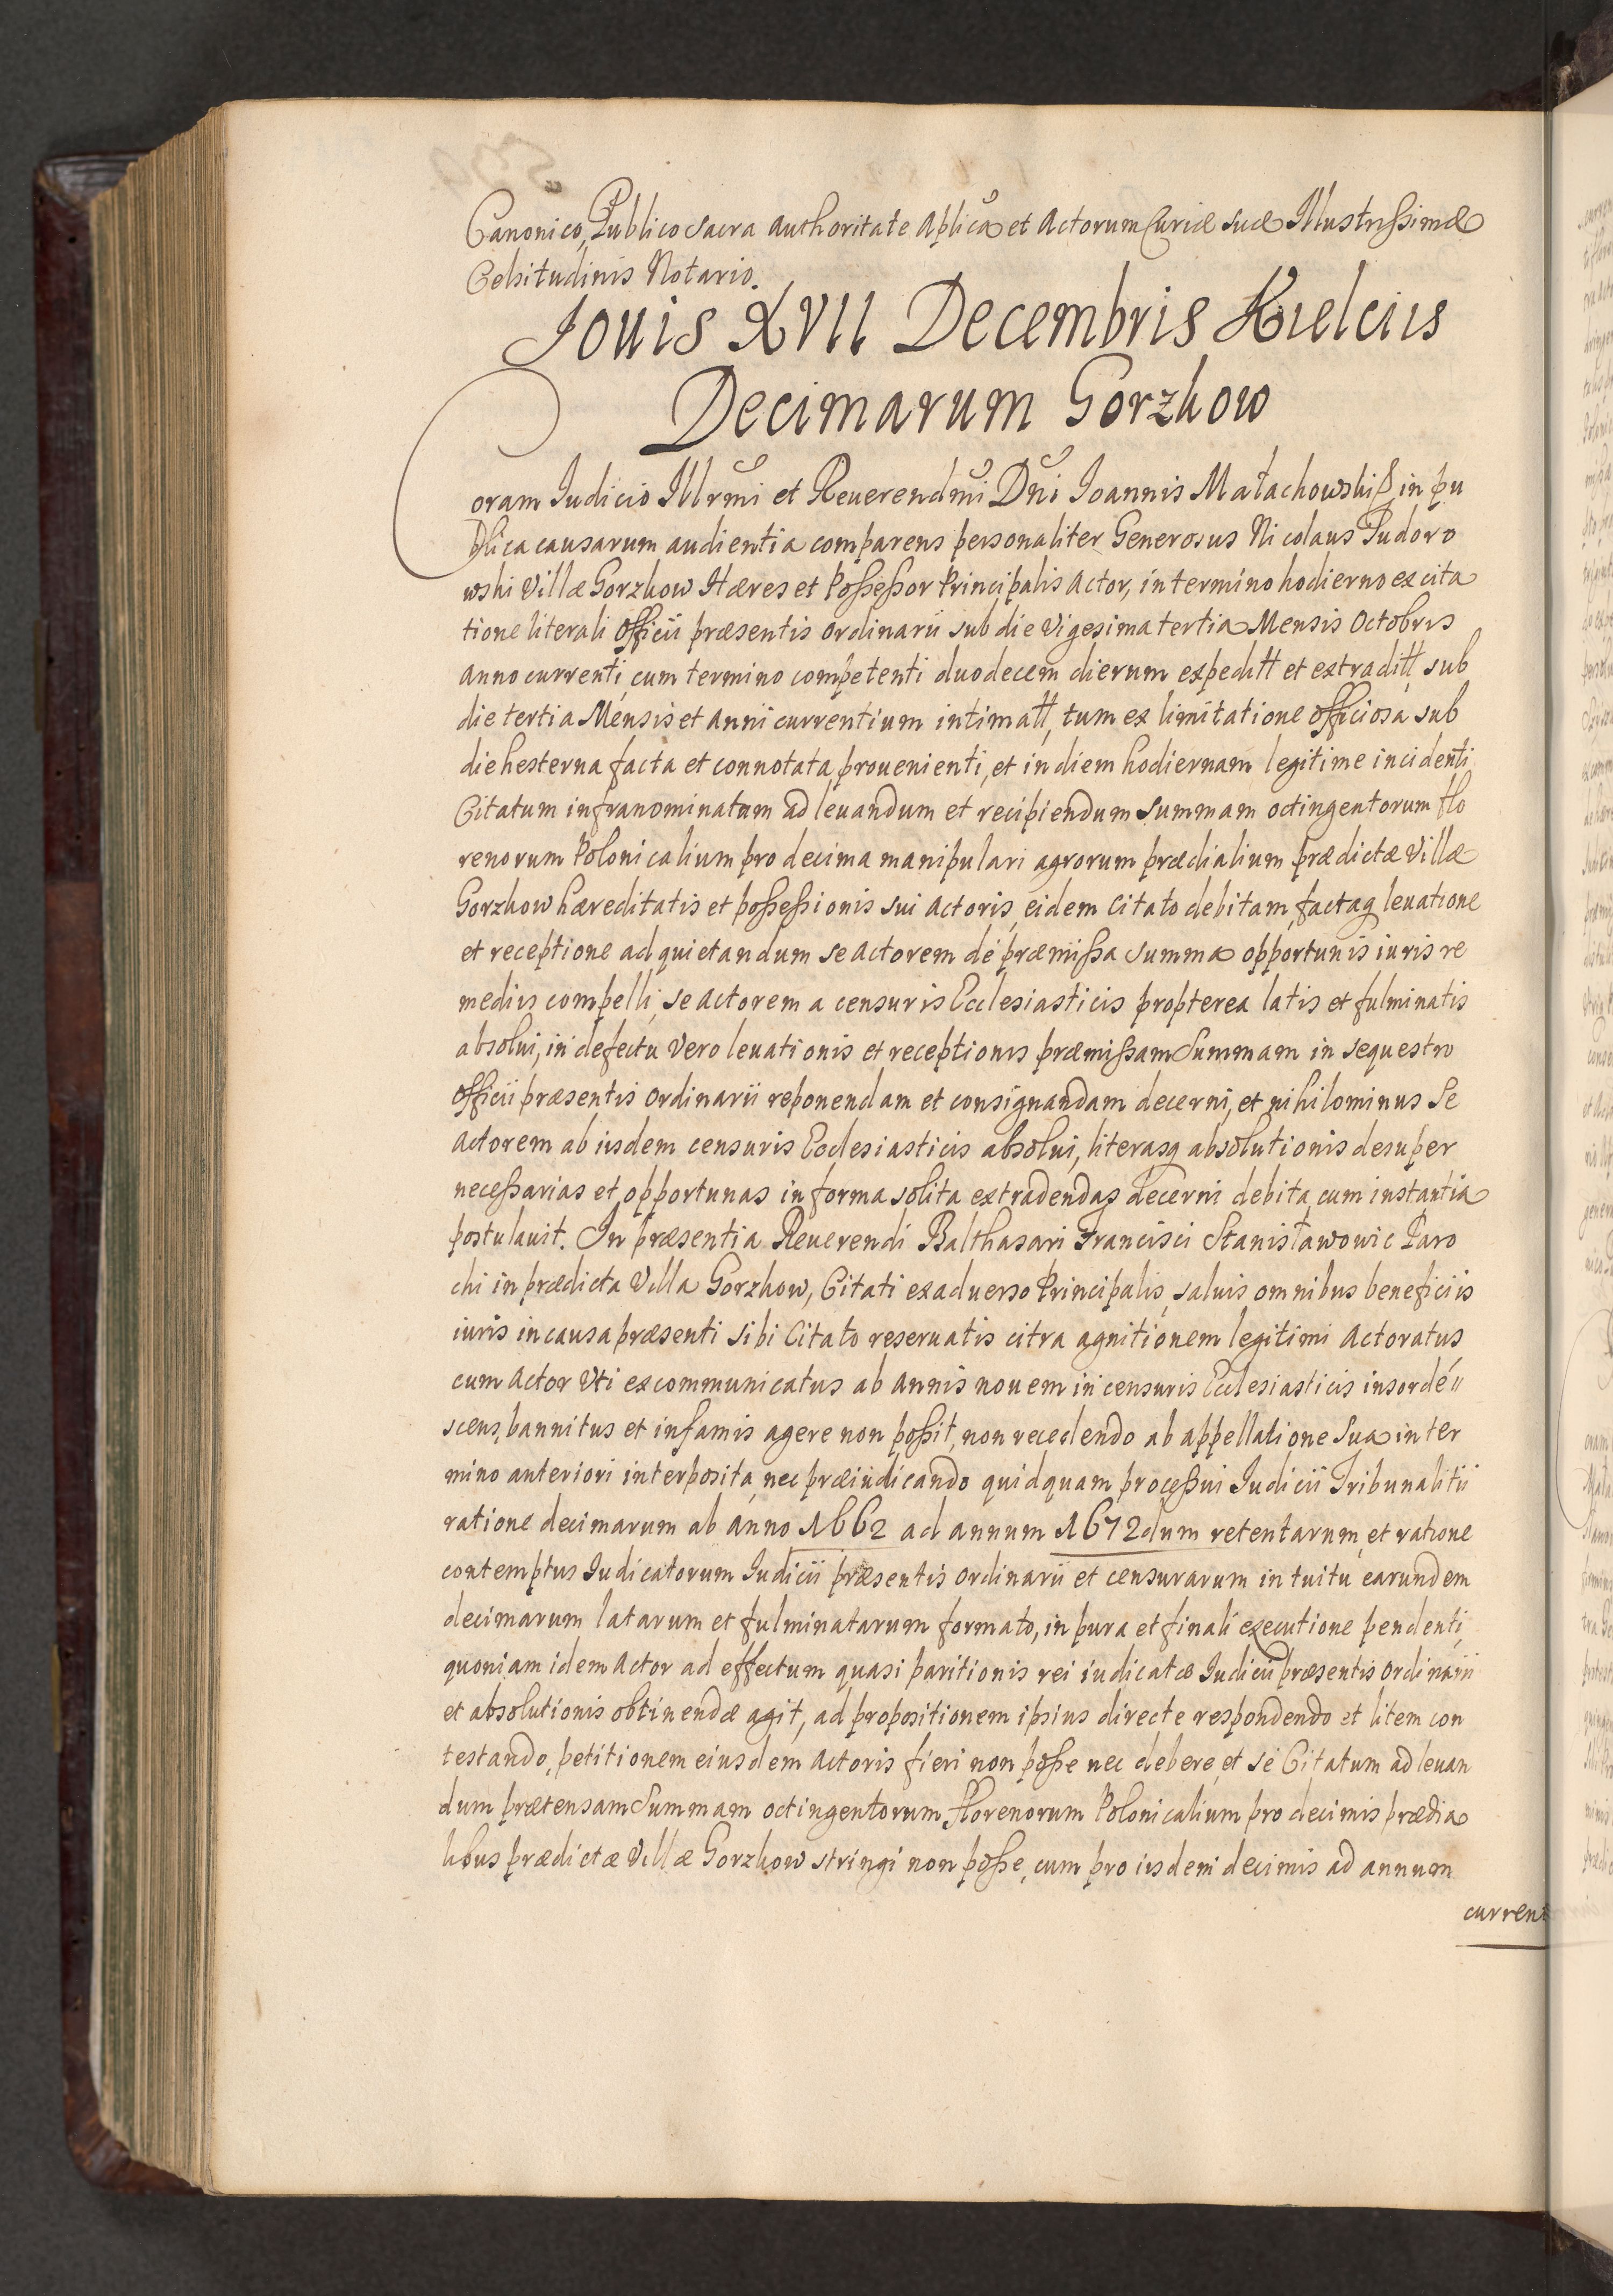 Canonico, Publico Sacra authoritate Aplica et Actorum Curiæ suæ Illustrissimæ
Celsitudinis Notario.
Iouis XVII Decembris Kielciis
Decimarum Gorzkow
Coram Iudicio Illrmi et Reuerendmi Dni Ioannis Małachowski in pu
blica causarum audientia comparens personaliter Generosus Nicolaus Pudoro
wski Villæ Gorzkow Hæres et Possessor Principalis Actor, in termino hodierno ex cita
tione literali Officii præsentis Ordinarii sub die Vigesima tertia Mensis Octobris
anno currenti, cum termino competenti duodecem dierum expeditt et extraditt, sub
die tertia Mensis et Anni currentium intimatt, tum ex limitatione officiosa sub
die hesterna facta et connotata, prouenienti, et in diem hodiernam legitime incidenti
Citatum infranominatum ad leuandum et recipiendum summam octingentorum flo
renorum Polonicalium pro decima manipulari agrorum prædialium prædictæ Villæ
Gorzkow hæreditatis et possessionis sui Actoris, eidem Citato debitam, factaq leuatione
et receptione ad quietandum se Actorem de præmissa summa opportunis iuris re
mediis compelli, se Actorem a censuris Ecclesiasticis propterea latis et fulminatis
absolui, in defectu vero leuationis et receptionis præmissam Summam in sequestro
Officii præsentis Ordinarii reponendam et consignandam decerni, et nihilominus se
Actorem ab iisdem censuris Ecclesiasticis absolui, literasq absolutionis desuper
necessarias et opportunas in forma solita extradendas decerni debita cum instantia
postulauit. In præsentia Reuerendi Balthasari Francisci Stanisławowic Paro
chi in prædicta Villa Gorzkow, Citati ex aduerso Principalis, saluis omnibus beneficiis
iuris in causa præsenti sibi Citato reseruatis citra agnitionem legitimi Actoratus,
cum Actor Vti excommunicatus ab annis nouem in censuris Ecclesiasticis insorde"
scens, bannitus et infamis agere non possit, non recedendo ab appellatione sua in ter
mino anteriori interposita, nec præiudicando quidquam processui Iudicii Tribunalitii
ratione decimarum ab anno 1662 ad annum 1672dum retentarum, et ratione
contemptus Iudicatorum Iudicii præsentis Ordinarii et censurarum intuitu earundem
decimarum latarum et fulminatarum formato, in pura et finali executione pendenti,
quoniam idem Actor ad effectum quasi paritionis rei iudicatæ Iudicii præsentis Ordinarii
et absolutionis obtinendæ agit, ad propositionem ipsius directe respondendo et litem con
testando, petitionem eiusdem Actoris fieri non posse nec debere, et se Citatum ad leuan
dum prætensam Summam octingentorum florenorum Polonicalium pro decimis prædia
libus prædictæ Villæ Gorzkow stringi non posse, cum pro iisdem decimis ad annum